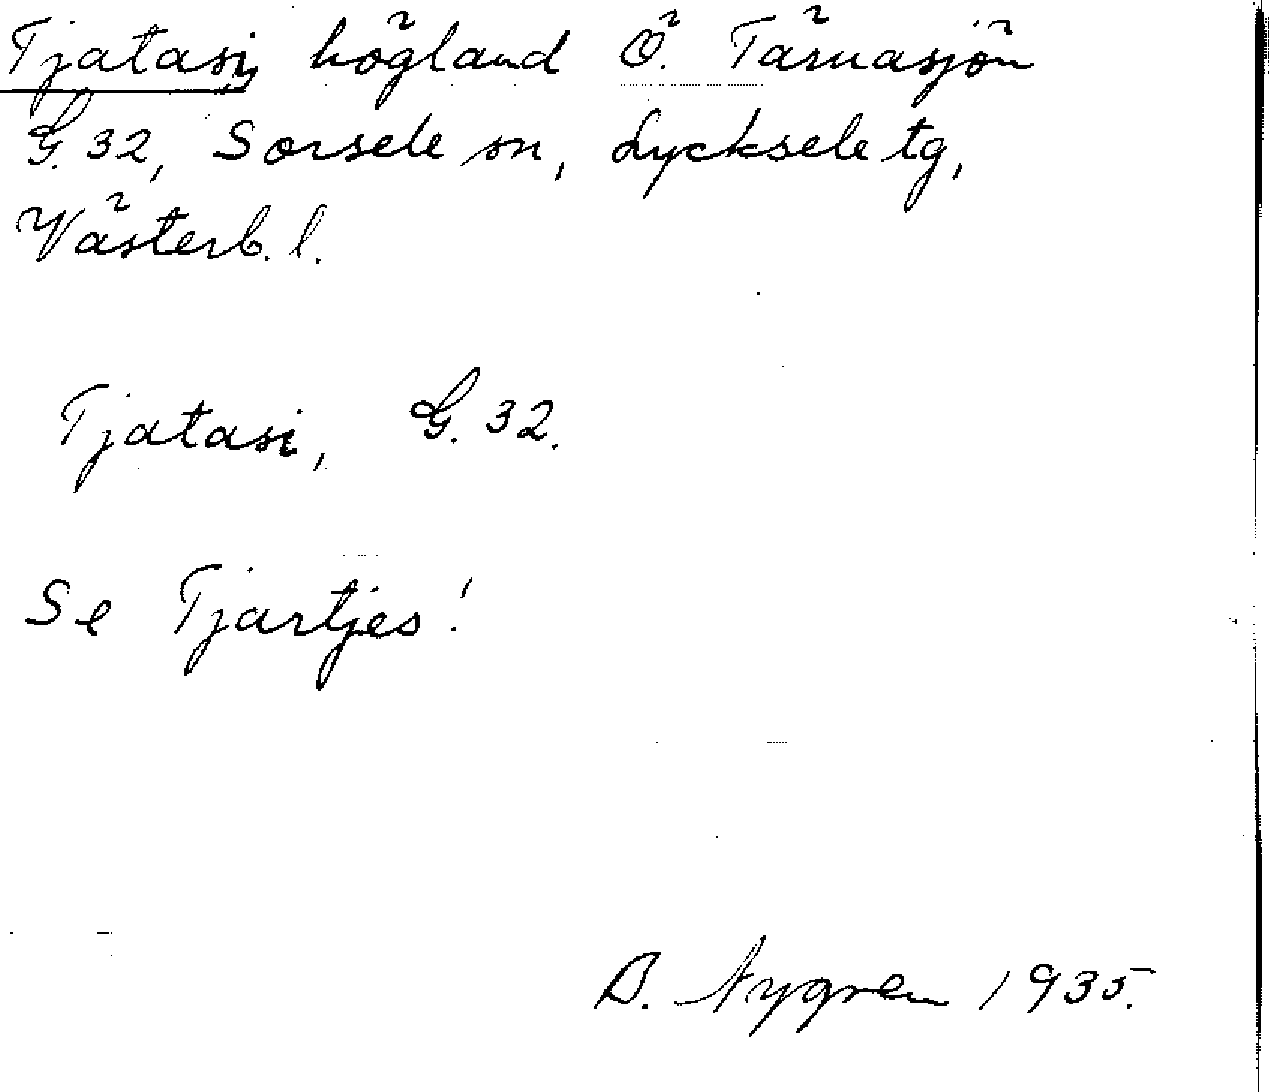 Tjatasi, högland Ö. Tärnasjön
G. 32, Sorsele sn, Lycksele tg,
Västerb. l.
Tjatasi, G. 32.
Se Tjartjes!
B. Nygren 1935.